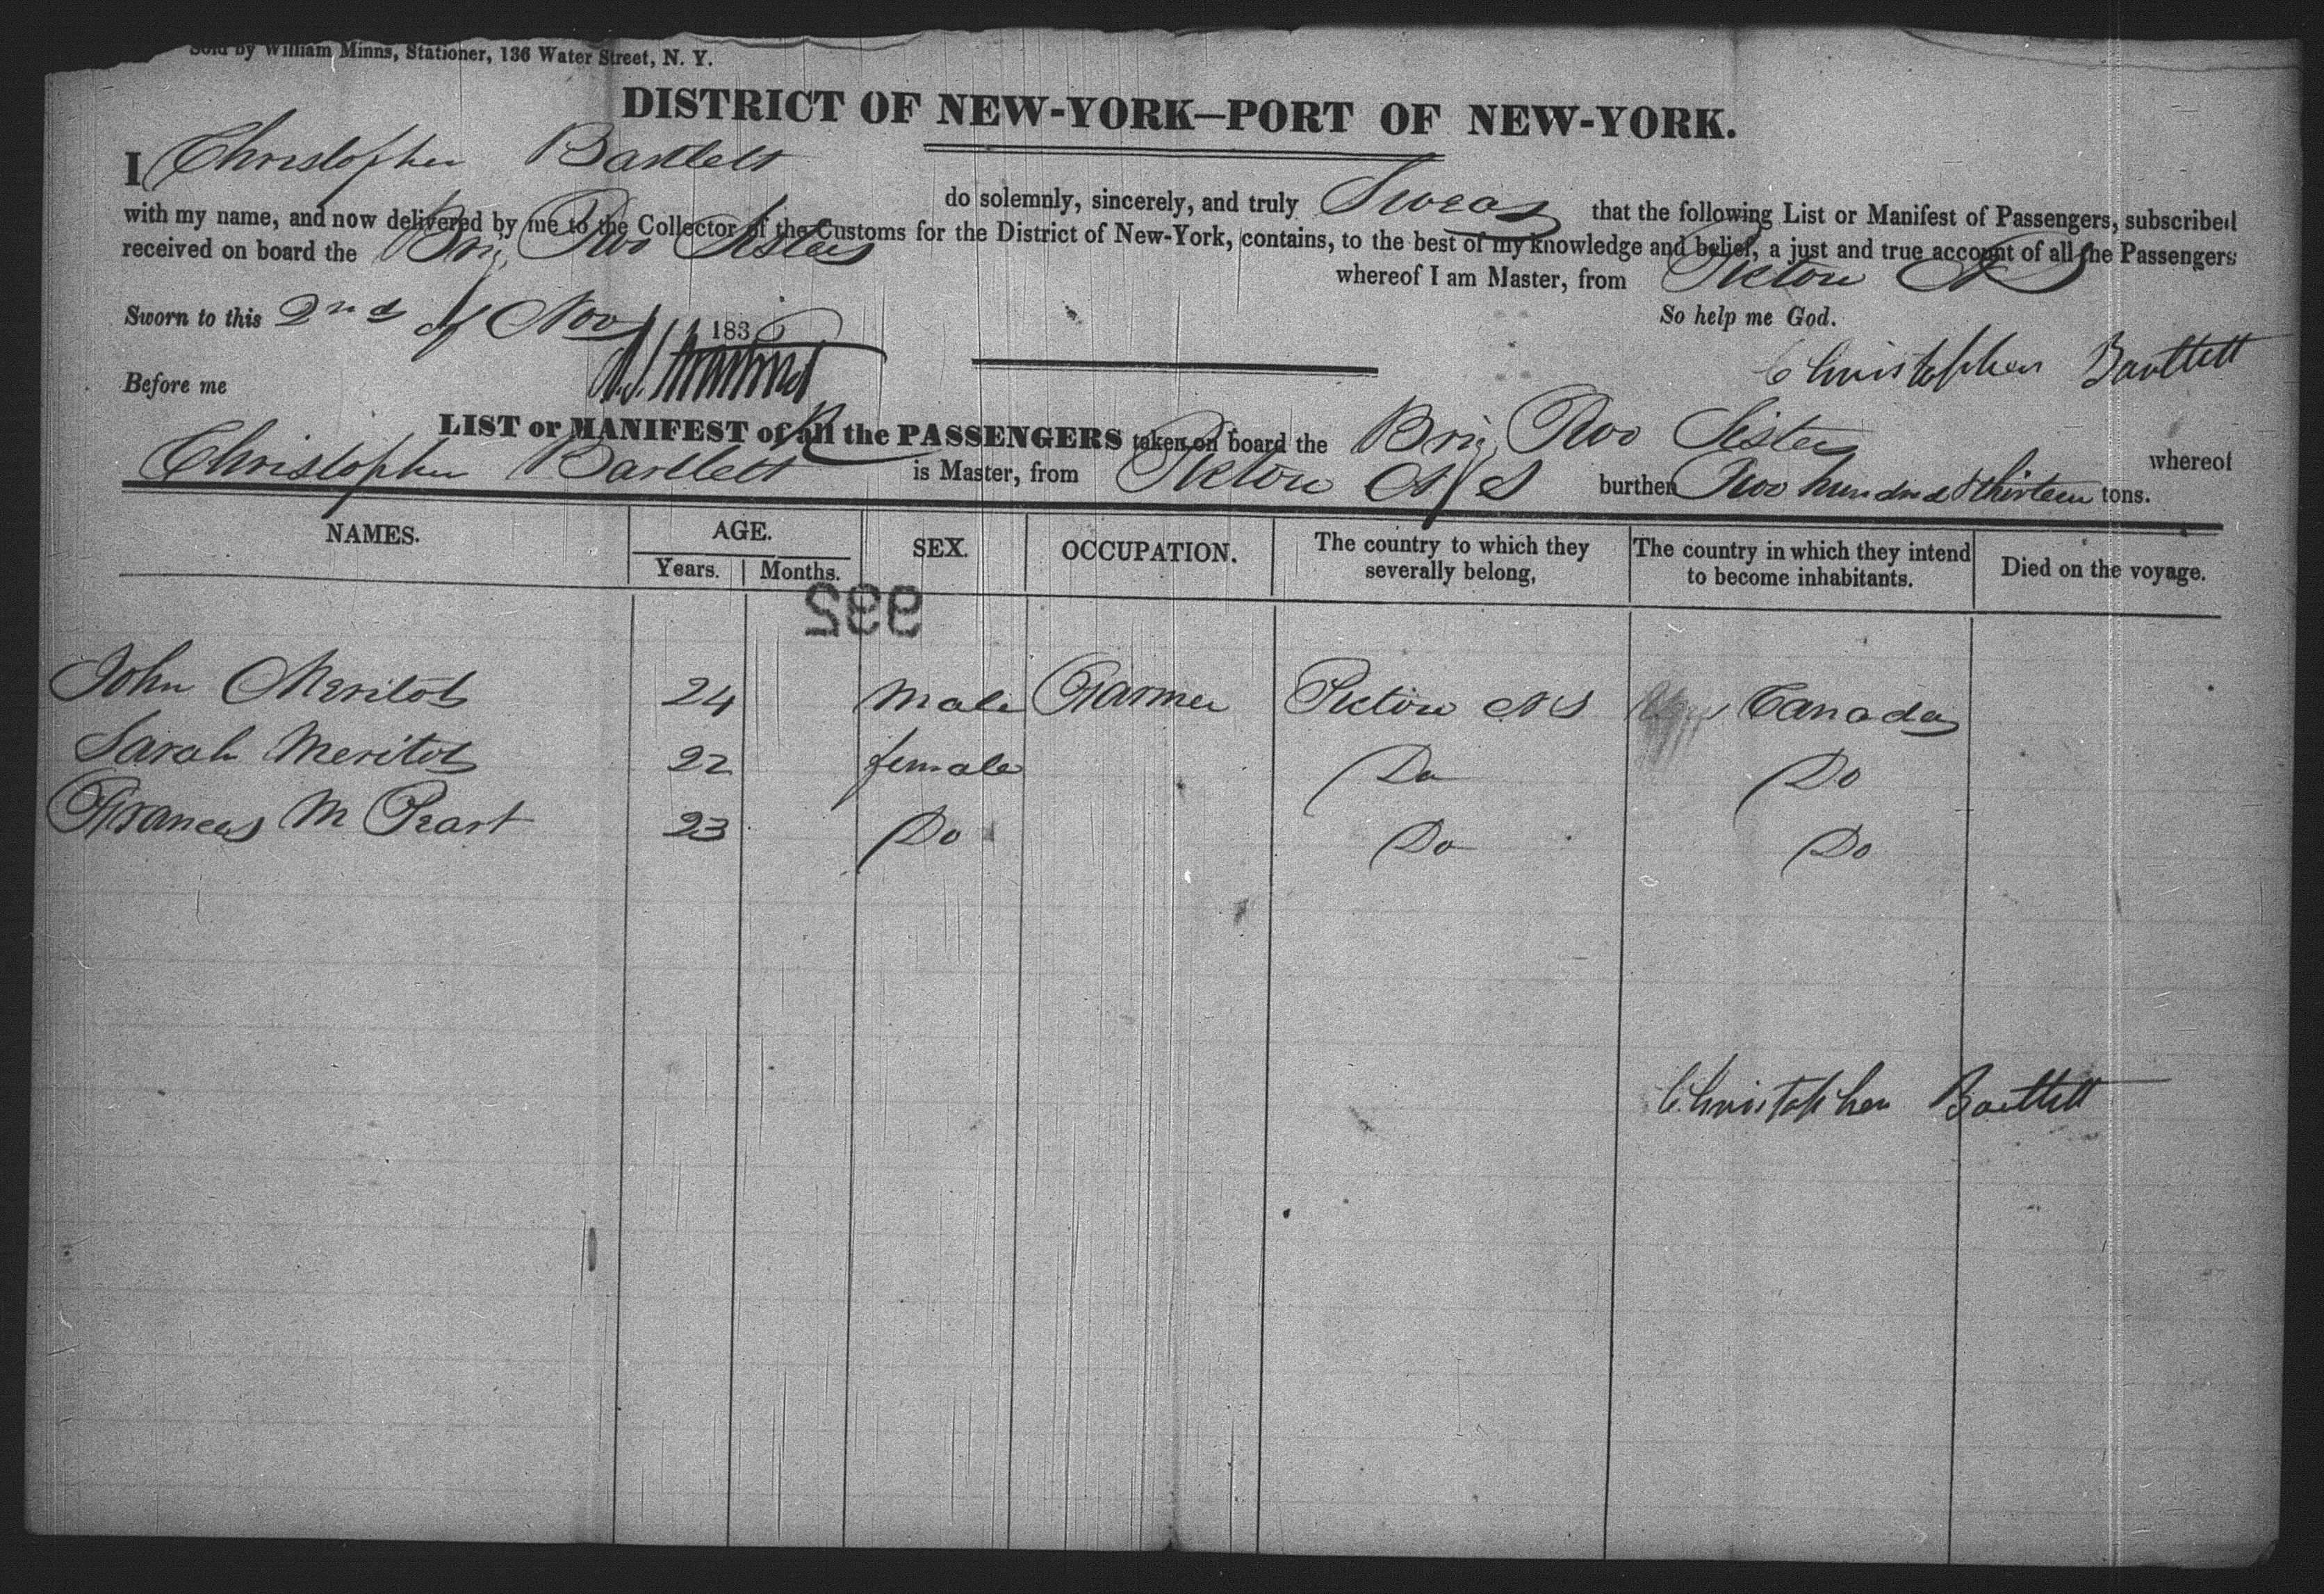 Sold by William Minns, Stationer, 136 Water Street, N. Y.
DISTRICT OF NEW-YORK—PORT OF NEW-YORK.
I Christopher Bartlett do solemnly, sincerely, and truly Swear that the following List or Manifest of Passengers, subscribed
with my name, and now delivered by me to the Collector of the Customs for the District of New-York, contains, to the best of my knowledge and belief, a just and true account of all the Passengers
received on board the Brig Two Sisters whereof I am Master, from Pictou N S
Sworn to this 2nd of Nov 183 So help me God.
Christopher Bartlett
Before me
LIST or MANIFEST of all the PASSENGERS taken on board the Brig Two Sisters whereof
Christopher Bartlett is Master, from Pictou N S burthen Two hundred & thirteen tons.
NAMES. AGE. Years. Months. SEX. OCCUPATION. The country to which they severally belong, The country in which they intend to become inhabitants. Died on the voyage.
932
John 24 Male Farmer Pictou N S Canada
Sarah 22 female Do Do
Frances M 23 Do Do Do
Christopher Bartlett